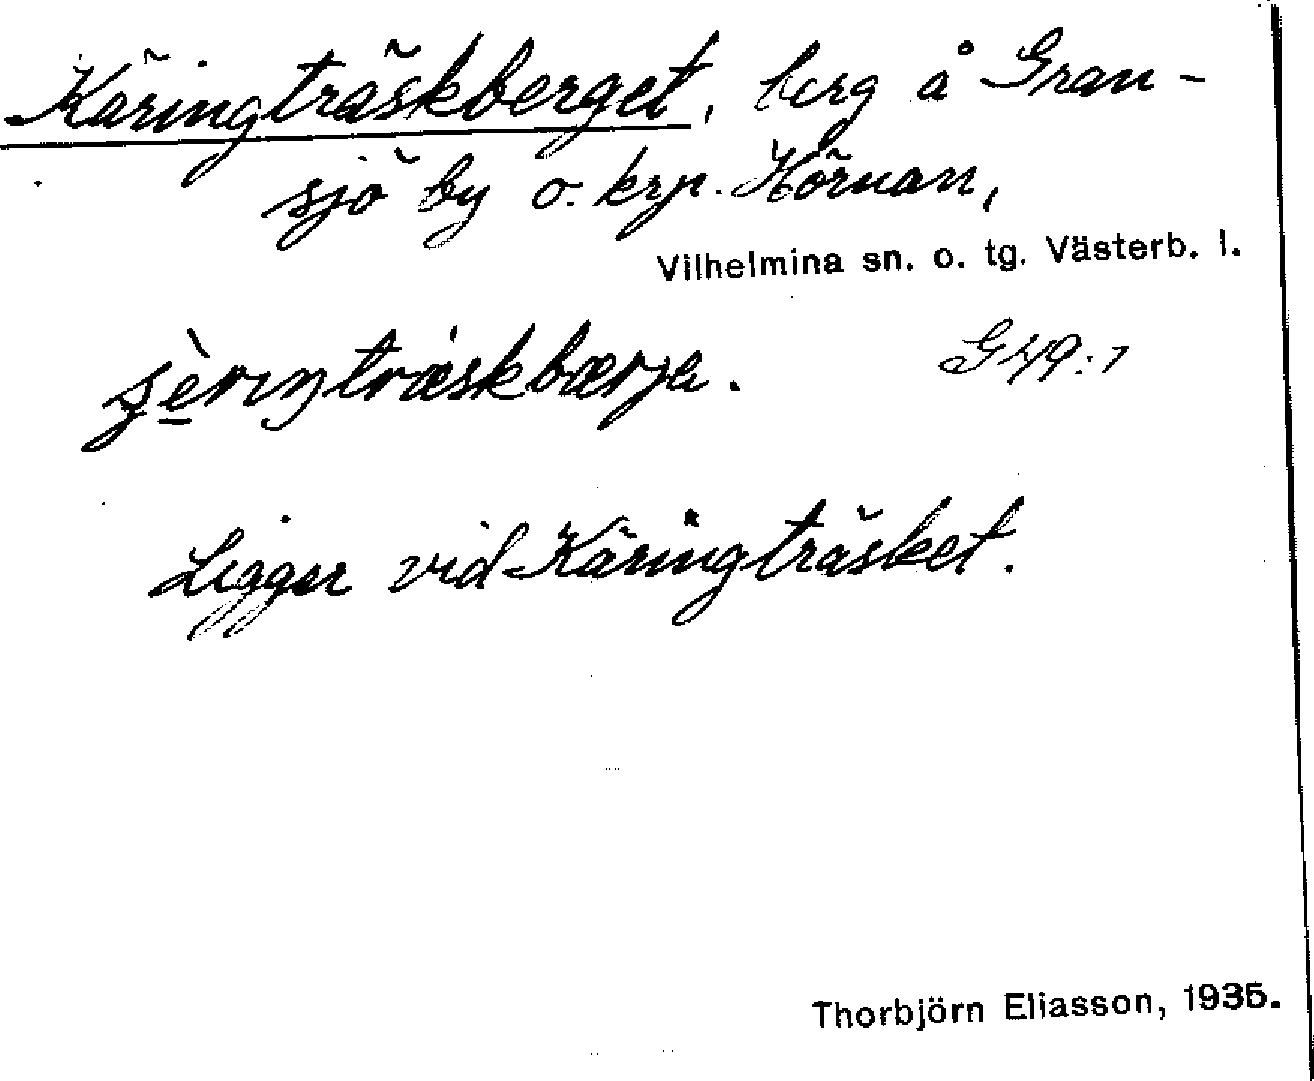 Käringträskberget, berg å Gran-
sjö by o. krp. Hörnan,
Vilhelmina sn. o. tg. Västerb. l.
G 49:1
Ligger vid Käringträsket.
Thorbjörn Eliasson, 1935.